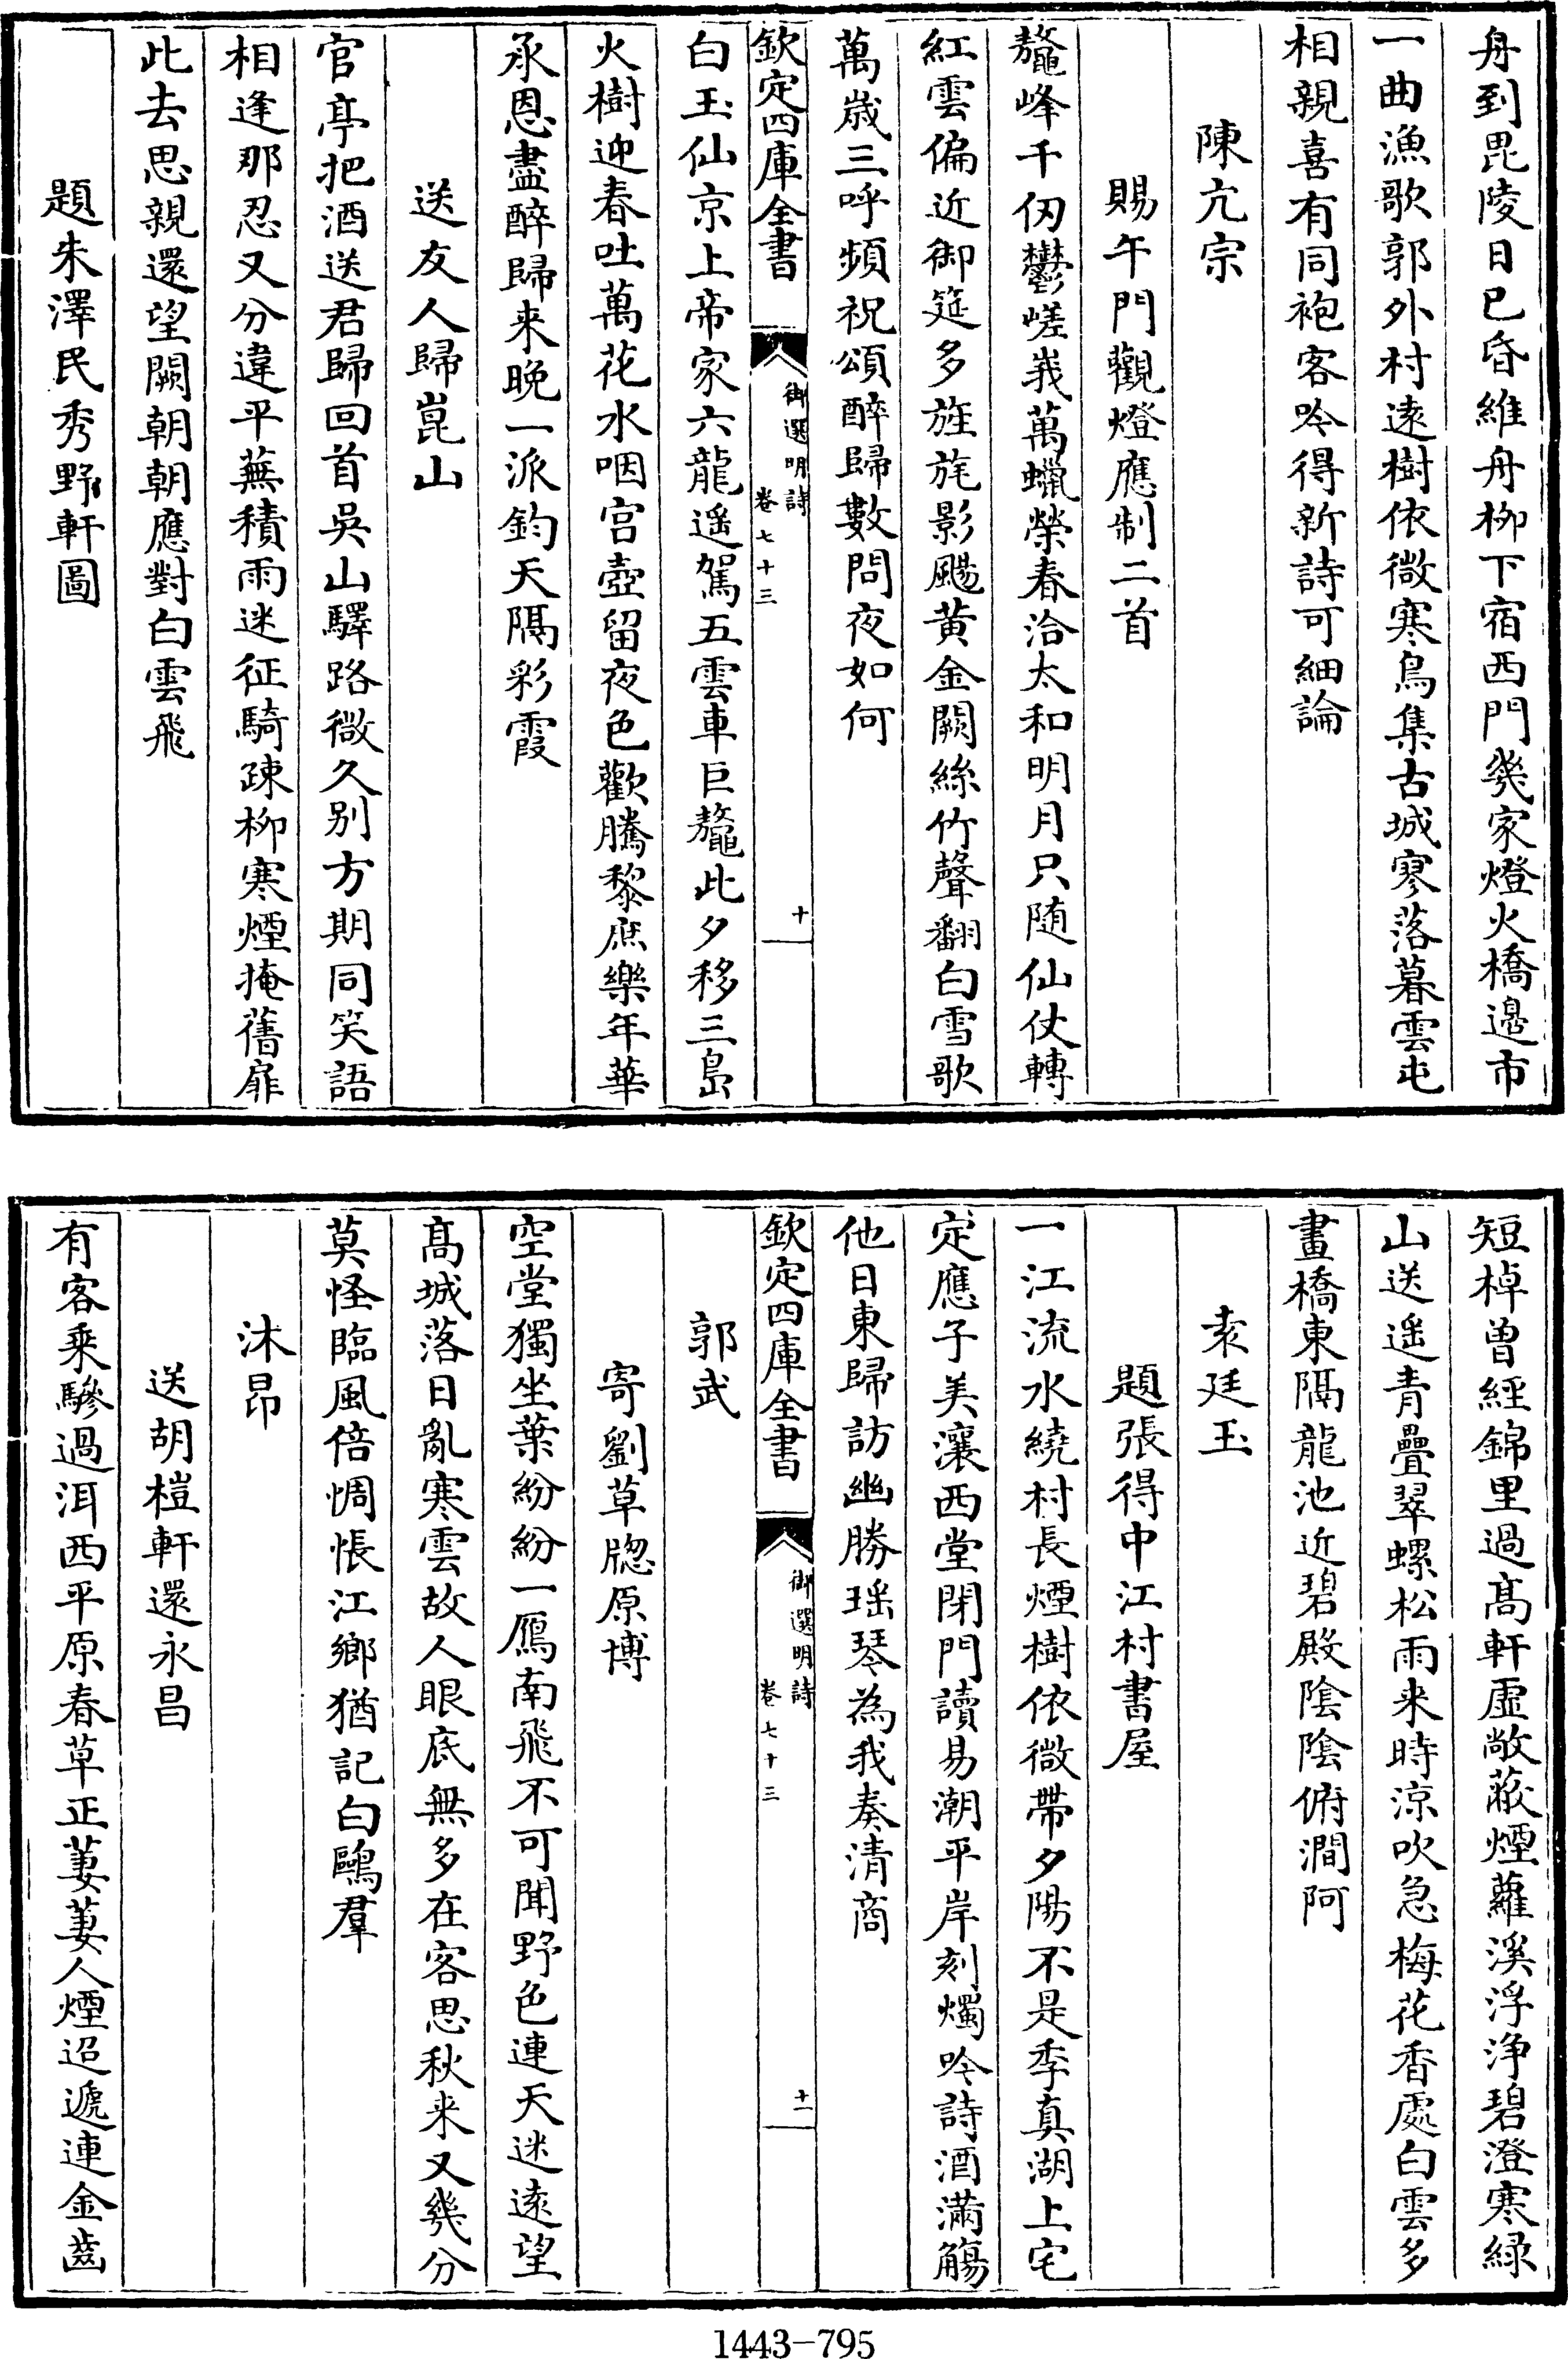 舟到毘陵日已昏維舟柳下宿西門幾家燈火橋邊市
一曲漁歌郭外村遠樹依微寒鳥集古城寥落暮雲屯
相親喜有同袍客吟得新詩可細論
陳亢宗
賜午門觀燈應制二首
鼇峰千仞鬱嵯峩萬蠟榮春洽太和明月只随仙仗轉
紅雲偏近御筵多旌旄影颺黄金闕絲竹聲翻白雪歌
萬歲三呼頻祝頌醉歸數問夜如何
欽定四庫全書
御選明詩
卷七十三
十
白玉仙京上帝家六龍遥駕五雲車巨鼇此夕移三島
火樹迎春吐萬花水咽宫壺留夜色歡騰黎庶樂年華
承恩盡醉歸来晚一派鈞天隔彩霞
送友人歸崑山
官亭把酒送君歸回首吳山驛路微久别方期同笑語
相逢那忍又分違平蕪積雨迷征騎疎柳寒煙掩舊扉
此去思親還望闕朝朝應對白雲飛
題朱澤民秀野軒圖
短棹曽經錦里過髙軒虚敞蔽煙蘿溪浮浄碧澄寒緑
山送遥青疊翠螺松雨来時涼吹急梅花香處白雲多
畫橋東隔龍池近碧殿陰陰俯澗阿
袁廷玉
題張得中江村書屋
一江流水繞村長煙樹依微帶夕陽不是季真湖上宅
定應子美瀼西堂閉門讀易潮平岸刻燭吟詩酒滿觴
他日東歸訪幽勝瑶琴為我奏清商
欽定四庫全書
御選明詩
卷七十三
十一
郭武
寄劉草牕原博
空堂獨坐葉紛紛一鴈南飛不可聞野色連天迷遠望
髙城落日亂寒雲故人眼底無多在客思秋来又幾分
莫怪臨風倍惆悵江鄉猶記白鷗羣
沐昂
送胡榿軒還永昌
有客乘驂過洱西平原春草正萋萋人煙迢遞連金齒
1443-795